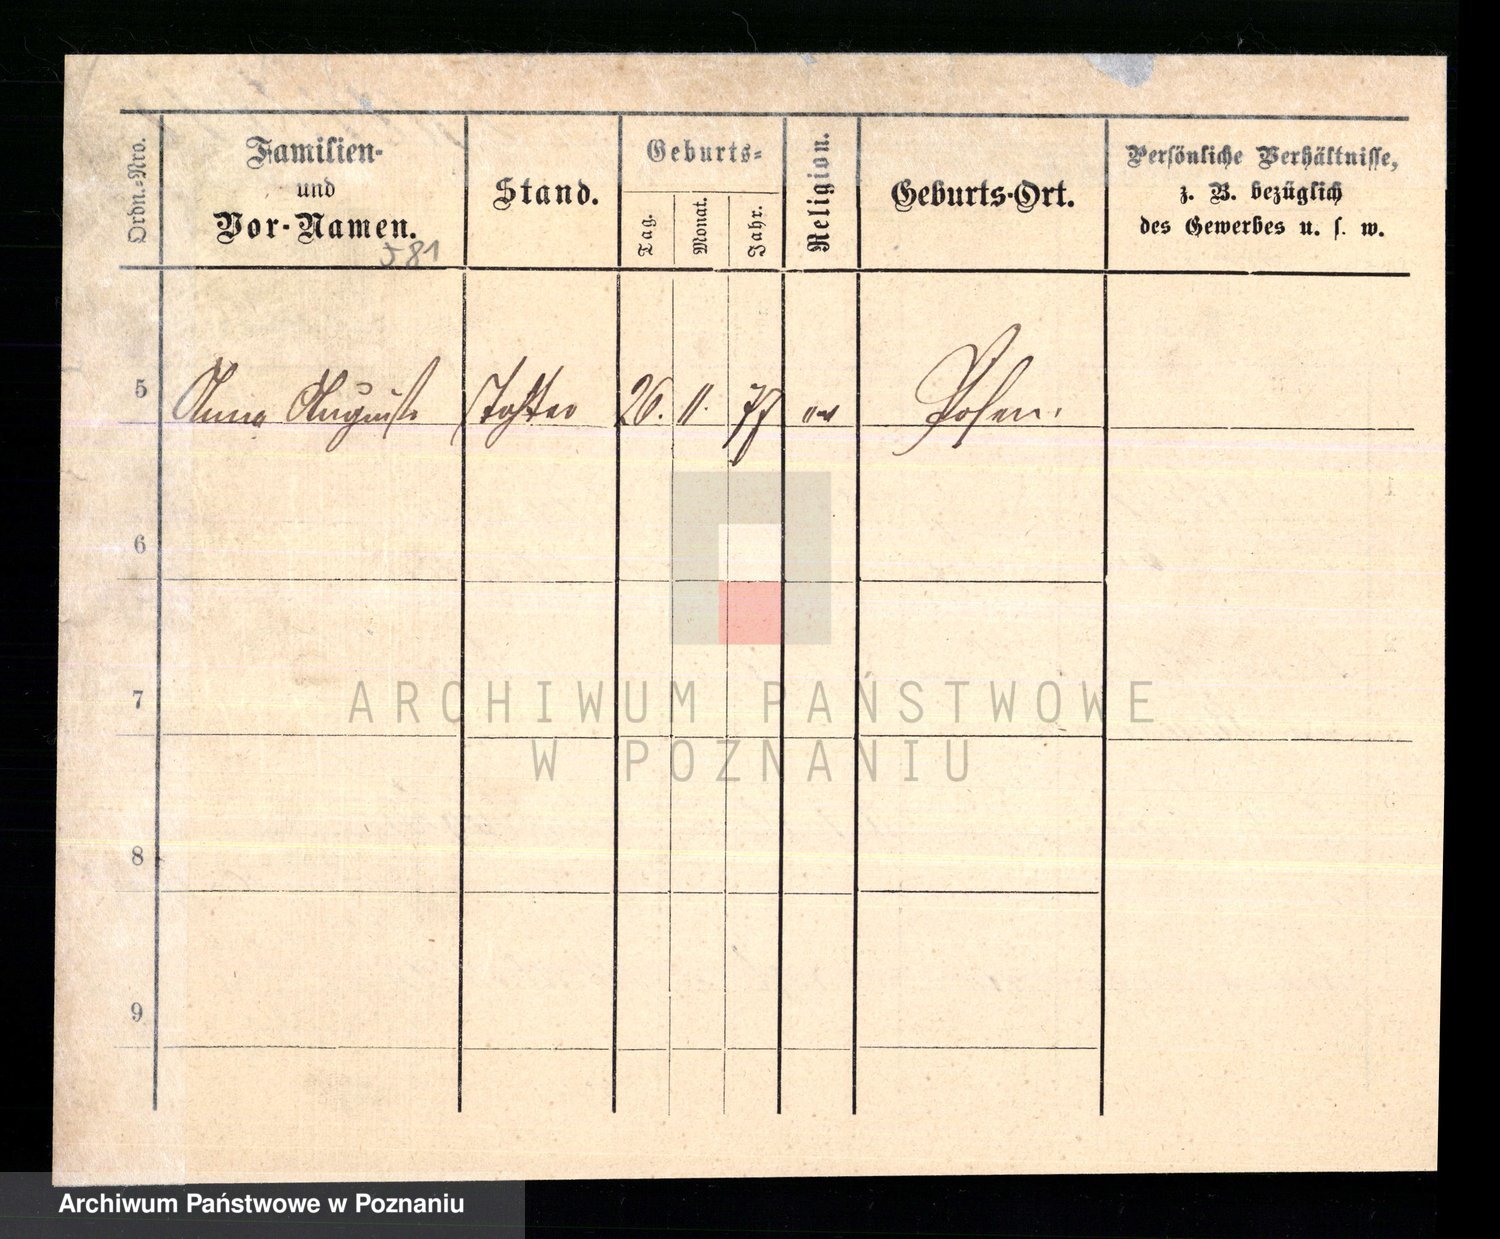 Ordn.-Nro.
Familien-
und
Vor-Namen.
581
Stand.
Geburts-
Tag.
Monat.
Jahr.
Religion.
Geburts-Ort.
Persönliche Verhältnisse,
z. B. bezüglich
des Gewerbes u. s. w.
5 Anna Auguste Tochter 26. 11. 77 Posen.
6
7
8
9
ARCHIWUM PAŃSTWOWE
W POZNANIU
Archiwum Państwowe w Poznaniu